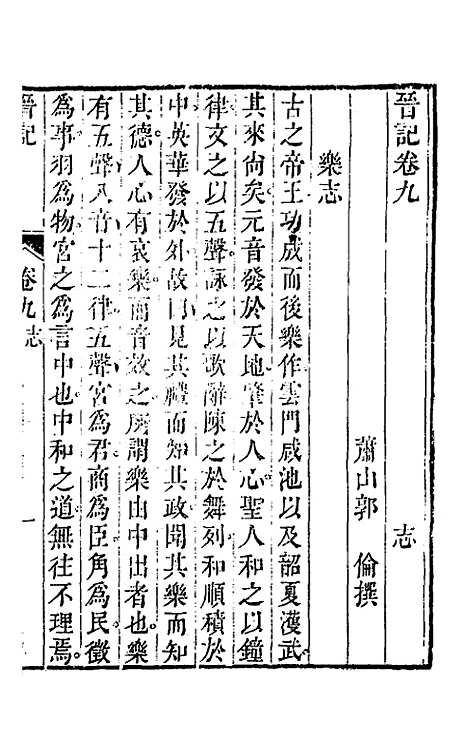 晉記卷九 志
蕭山郭 倫撰
樂志
古之帝王功成而後樂作雲門咸池以及韶夏濩武
其來尙矣元音發於天地肇於人心聖人和之以鐘
律文之以五聲詠之以歌辭陳之於舞列和順積於
中英華發於外故曰見其禮而知其政聞其樂而知
其德人心有哀樂而音效之所謂樂由中出者也樂
有五聲八音十二律五聲宮爲君商爲臣角爲民徵
爲事羽爲物宮之爲言中也中和之道無往不理焉
晉記 卷九志 一